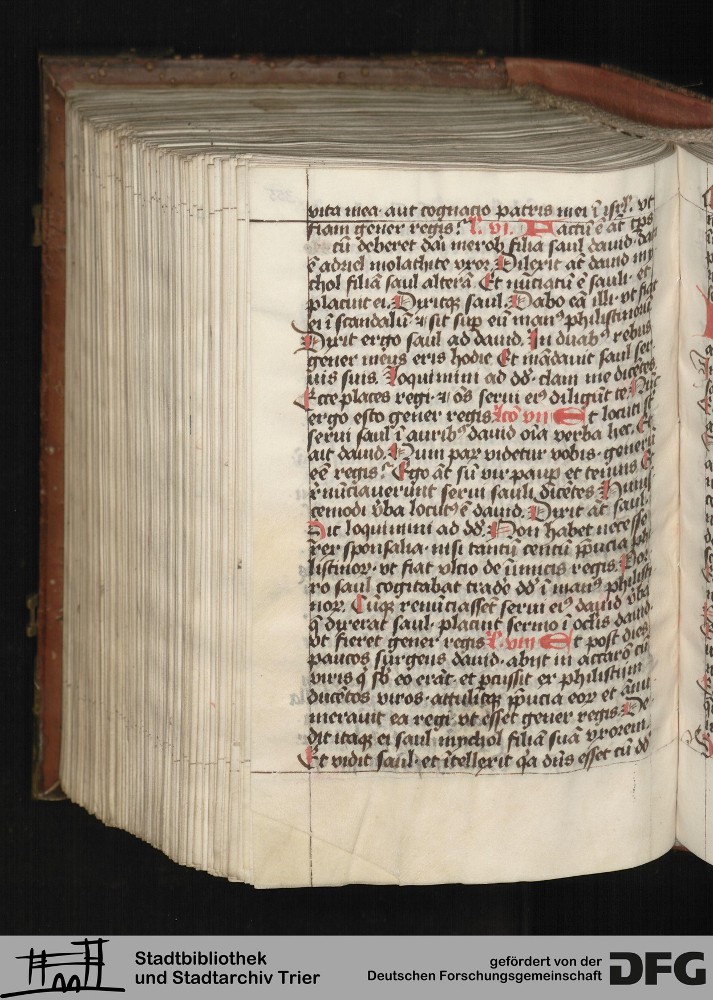 vita mea· aut cognacio patris mei ī isrl̄. vt
fiam gener regis? l̄. vi. Factū ē aūt tp̄s
cū deberet dari merob filia saul dauid· data
ē adriel molathite vxor. Dilexit aūt dauid my
chol filiā saul alterā. Et nūciatū ē sauli· et
placuit ei. Dixitqꝫ saul. Dabo eā illi· vt fiat
ei ī scandalū· ⁊ sit sup eū manꝰ philistinorū
Dixit ergo saul ad dauid. In duabꝰ rebus
gener meus eris hodie. Et mādauit saul ser
uis suis. Loquimini ad dd̄· clam me dicētes.
Ecce places regi· ⁊ om̄s serui eiꝰ diligūt te. Nūc
ergo esto gener regis. lc̄o vii Et locuti sūt
serui saul ī auribꝰ dauid om̄ia verba hec. Et
ait dauid. Num parū videtur vobis· generū
eē regis? Ego aūt sū vir paup et tenuis. Et
renūciauerunt serui sauli dicētes. Huius
cemodi v̄ba locutꝰ ē dauid. Dixit aūt saul.
Sic loquimini ad dd̄. Non habet necesse
rex sponsalia· nisi tantū centū p̄pucia phi
listinoꝝ· vt fiat vlcio de inimicis regis. Por
ro saul cogitabat trade dd̄ ī manꝰ philisti
noꝝ. Cūqꝫ renūciassēt serui eiꝰ dauid v̄ba
q̄ dixerat saul· placuit sermo ī oc̄lis dauid
vt fieret gener regis. l̄. viii Et post dies
paucos surgens dauid· abijt in accarō cū
viris q̄ sb̄ eo erāt· et pcussit ex philistijm
ducētos viros· attulitqꝫ p̄pucia eoꝝ et ānu
merauit ea regi vt esset gener regis. De
dit itaqꝫ ei saul mychol filiā suā vxorem.
Et vidit saul· et ītellexit qa dūs esset cū dd̄
Stadtbibliothek
und Stadtarchiv Trier
gefördert von der
Deutschen Forschungsgemeinschaft
DFG